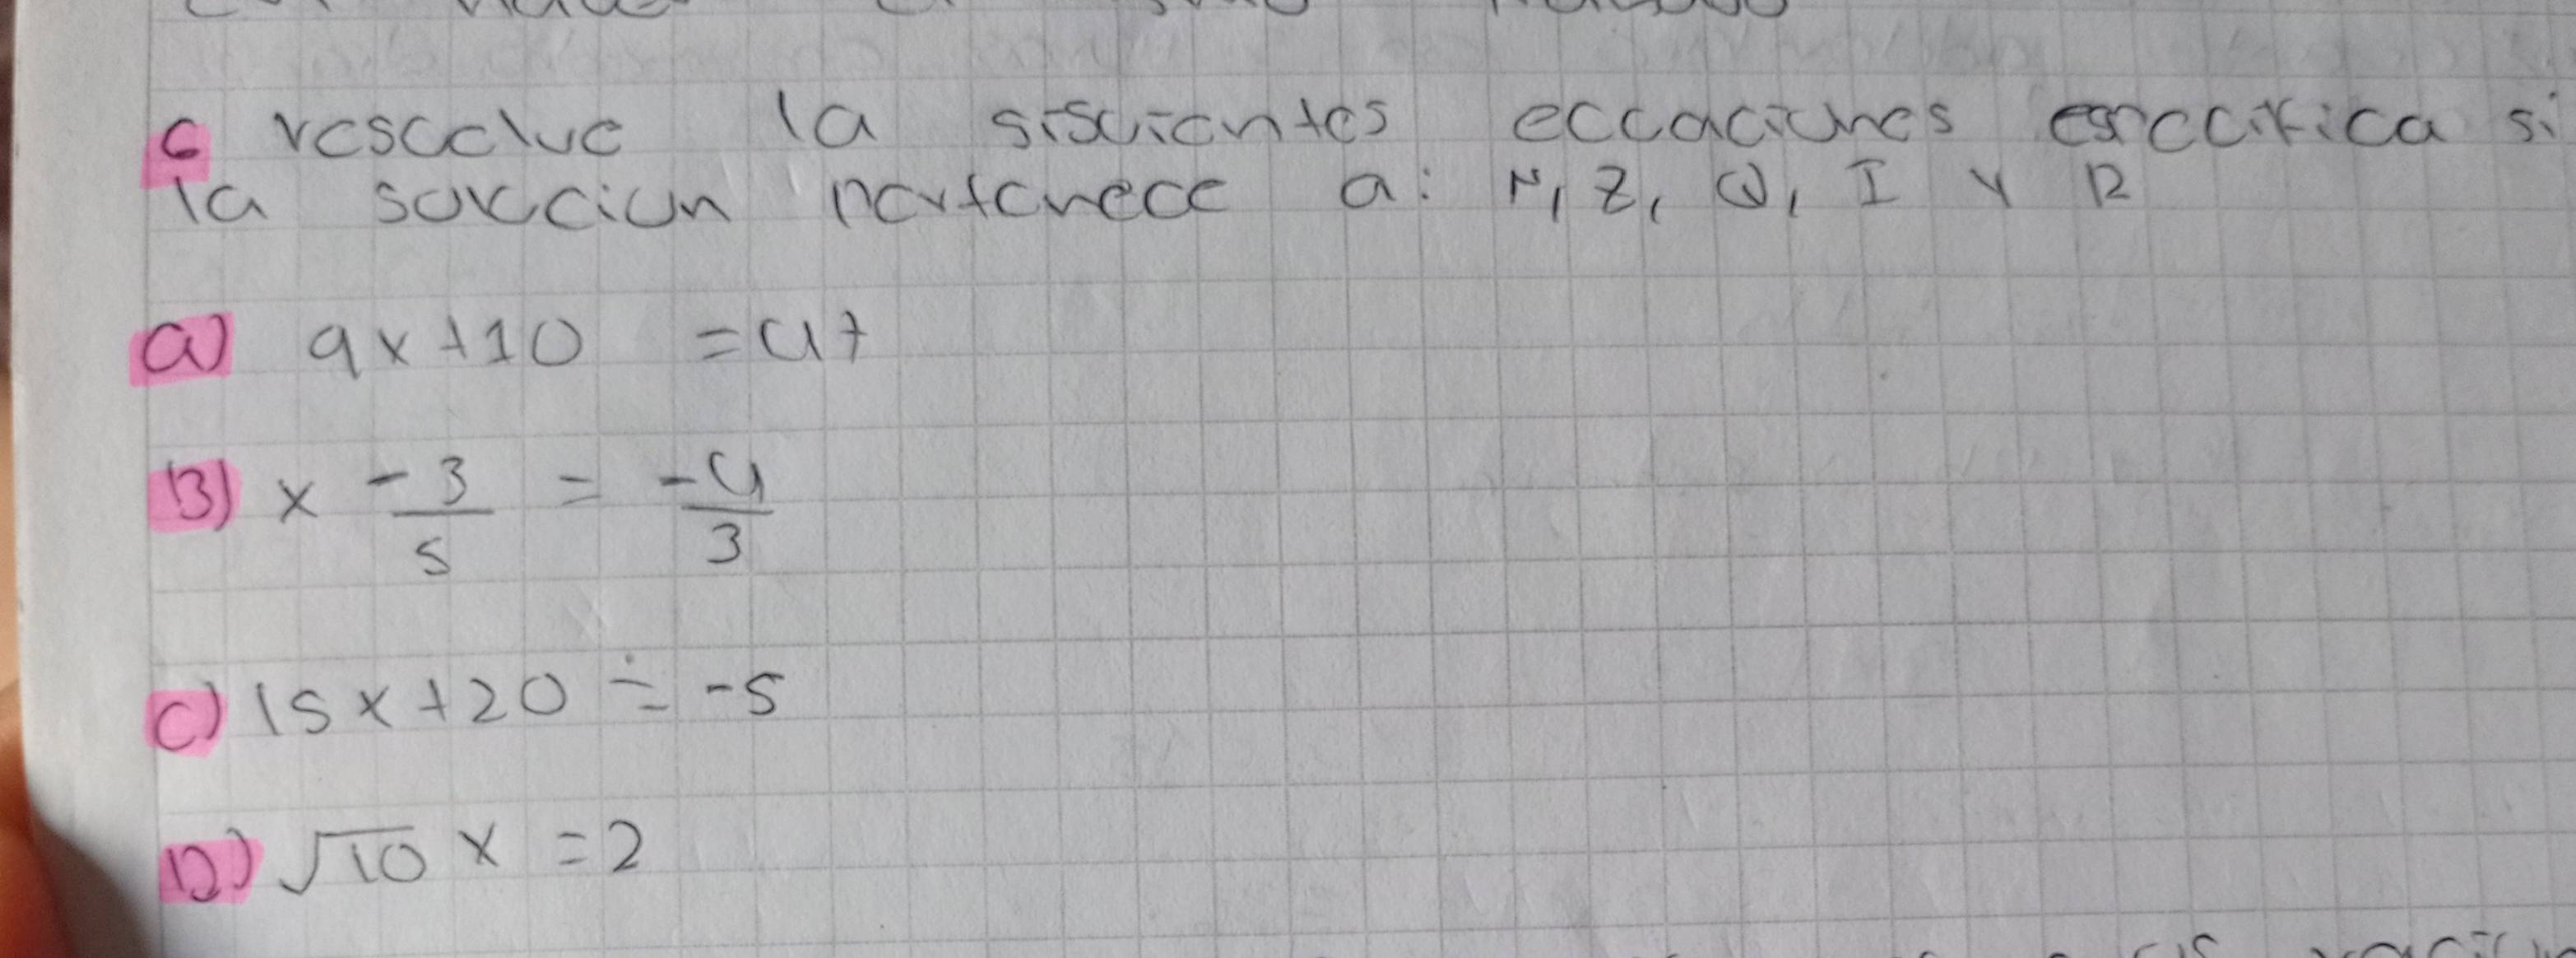 6 resuelve la siguientes ecuaciones especifica si
la solución pertenece a: N, Z, Q, I y R
a) 9x+10 =47
B) x -3/5 = -4/3
C) 15x+20 = -5
D) √10 x =2